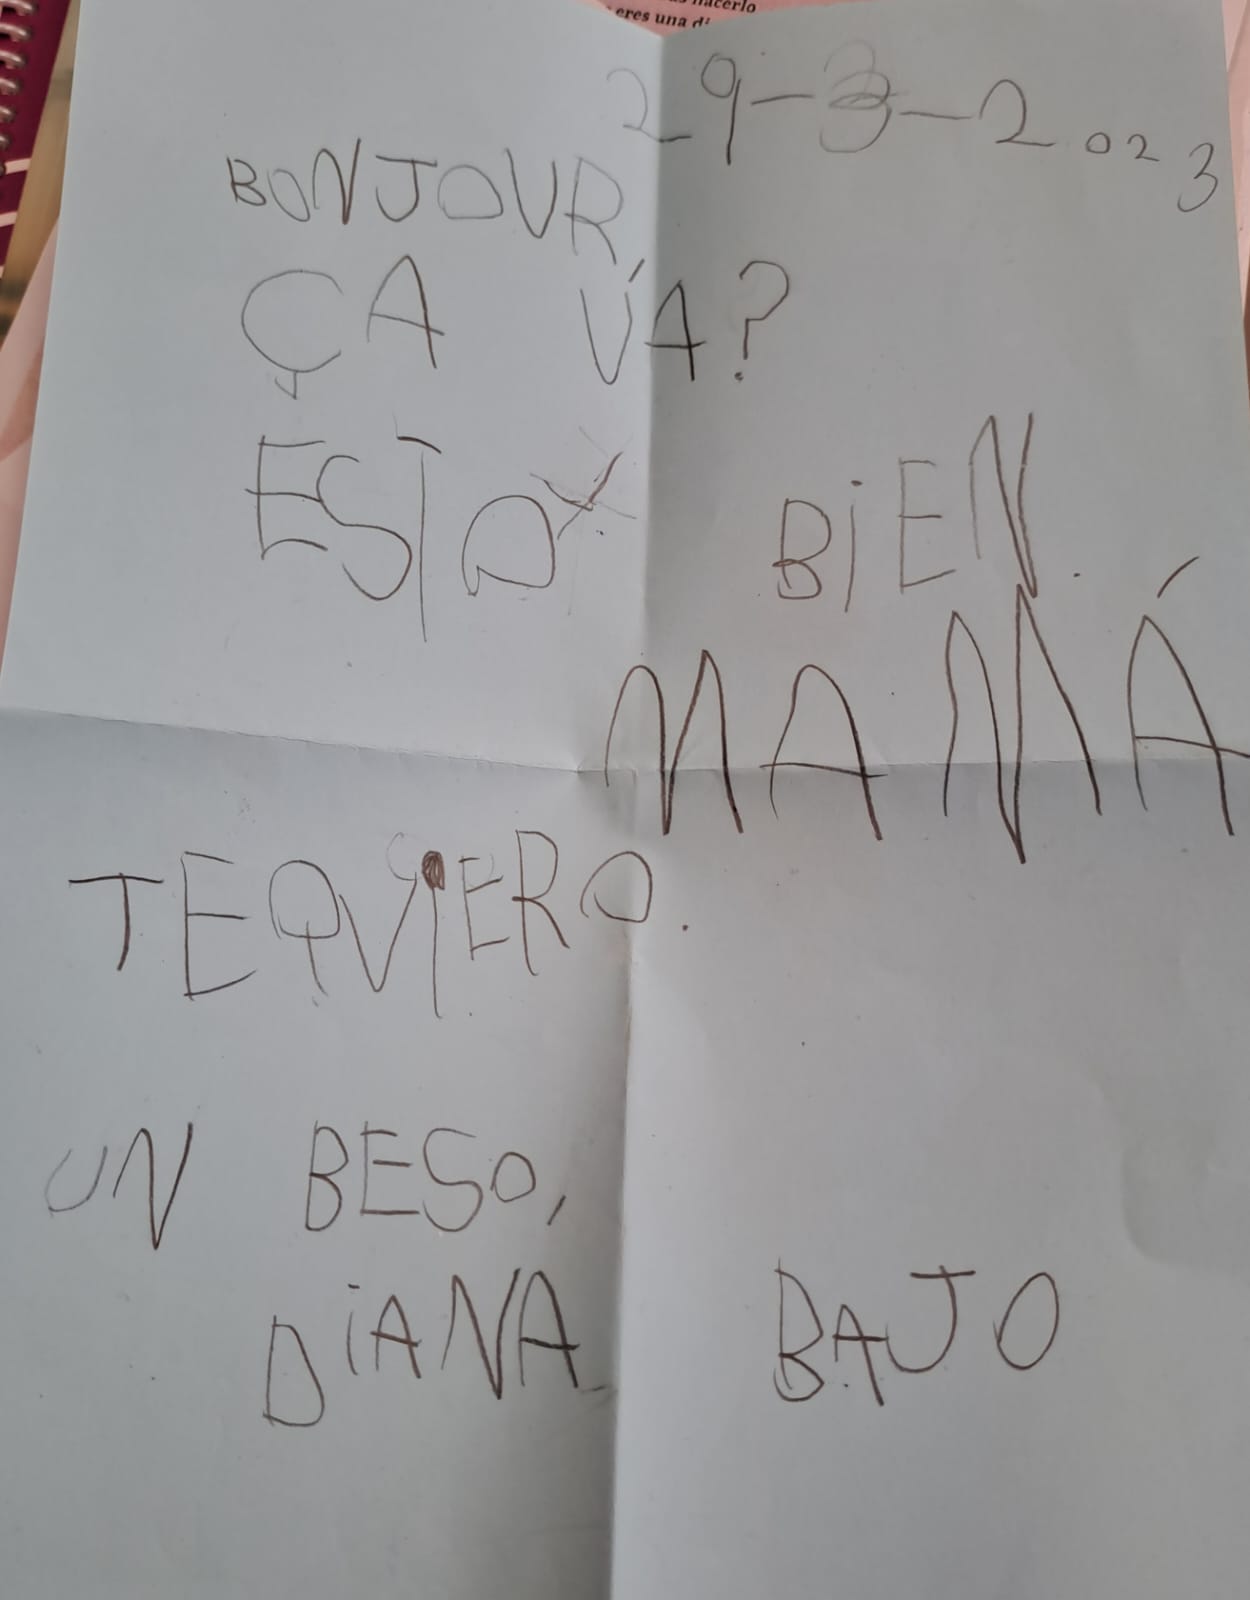 hacerlo
eres una
29-3-2023
BONJOUR,
ÇA VA?
ESTOY BiEN.
MAMÁ
TEQUIERO.
UN BESO,
DiANA BAJO